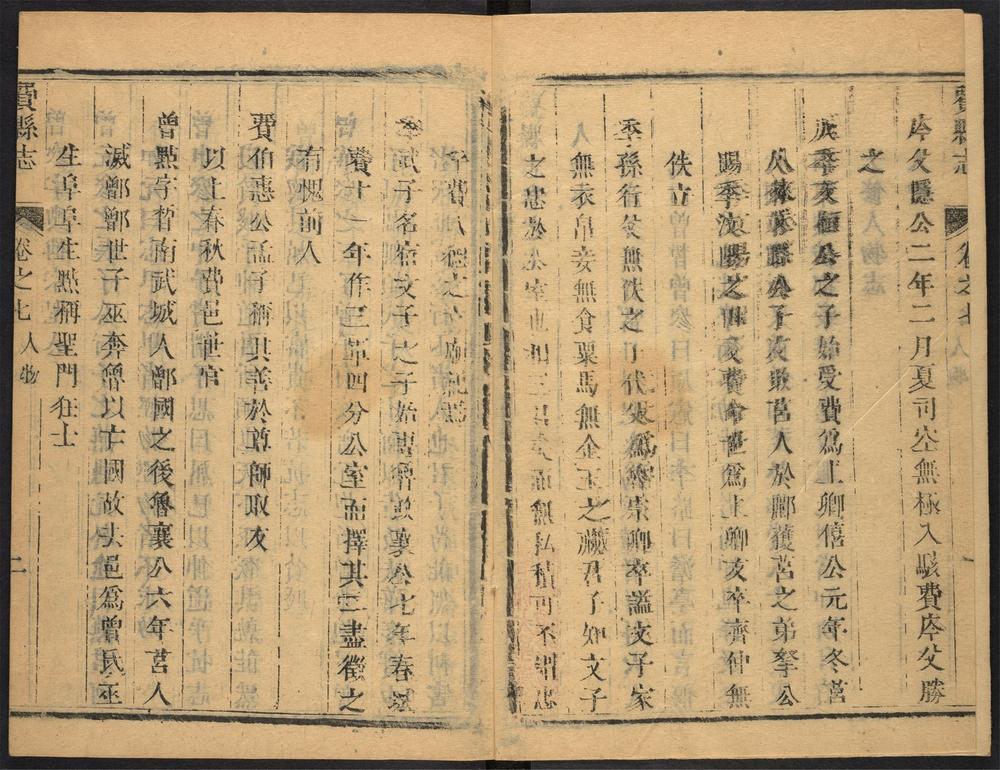 費縣志
卷之七
庈父隱公二年二月夏司空無極入駭費庈父勝
之
成季友桓公之子始受費爲上卿僖公元年冬莒
人 公子友敗莒人於酈獲莒之弟拏公
賜季 汶陽之田及費命世爲上卿友卒齊仲無
佚立
季孫行父無佚之子代 爲 卿卒謚文子家
無衣帛妾無食粟馬無金玉之藏君子知文子
之忠於公室也相三君 而無私積可不謂忠
乎費人

武子名宿文子之子始 襄公七年春城
費十一年作三軍四分公室而擇其二盡徵之
有愧前人
費伯惠公孟子稱其善於尊師取友
以上春秋費邑世官
曾點字晳南武城人鄫國之後魯襄公六年莒人
滅鄫鄫世子巫奔魯以亡國故去邑爲曾氏巫
生阜阜生點稱聖門狂士
費縣志
卷之七
人物
二